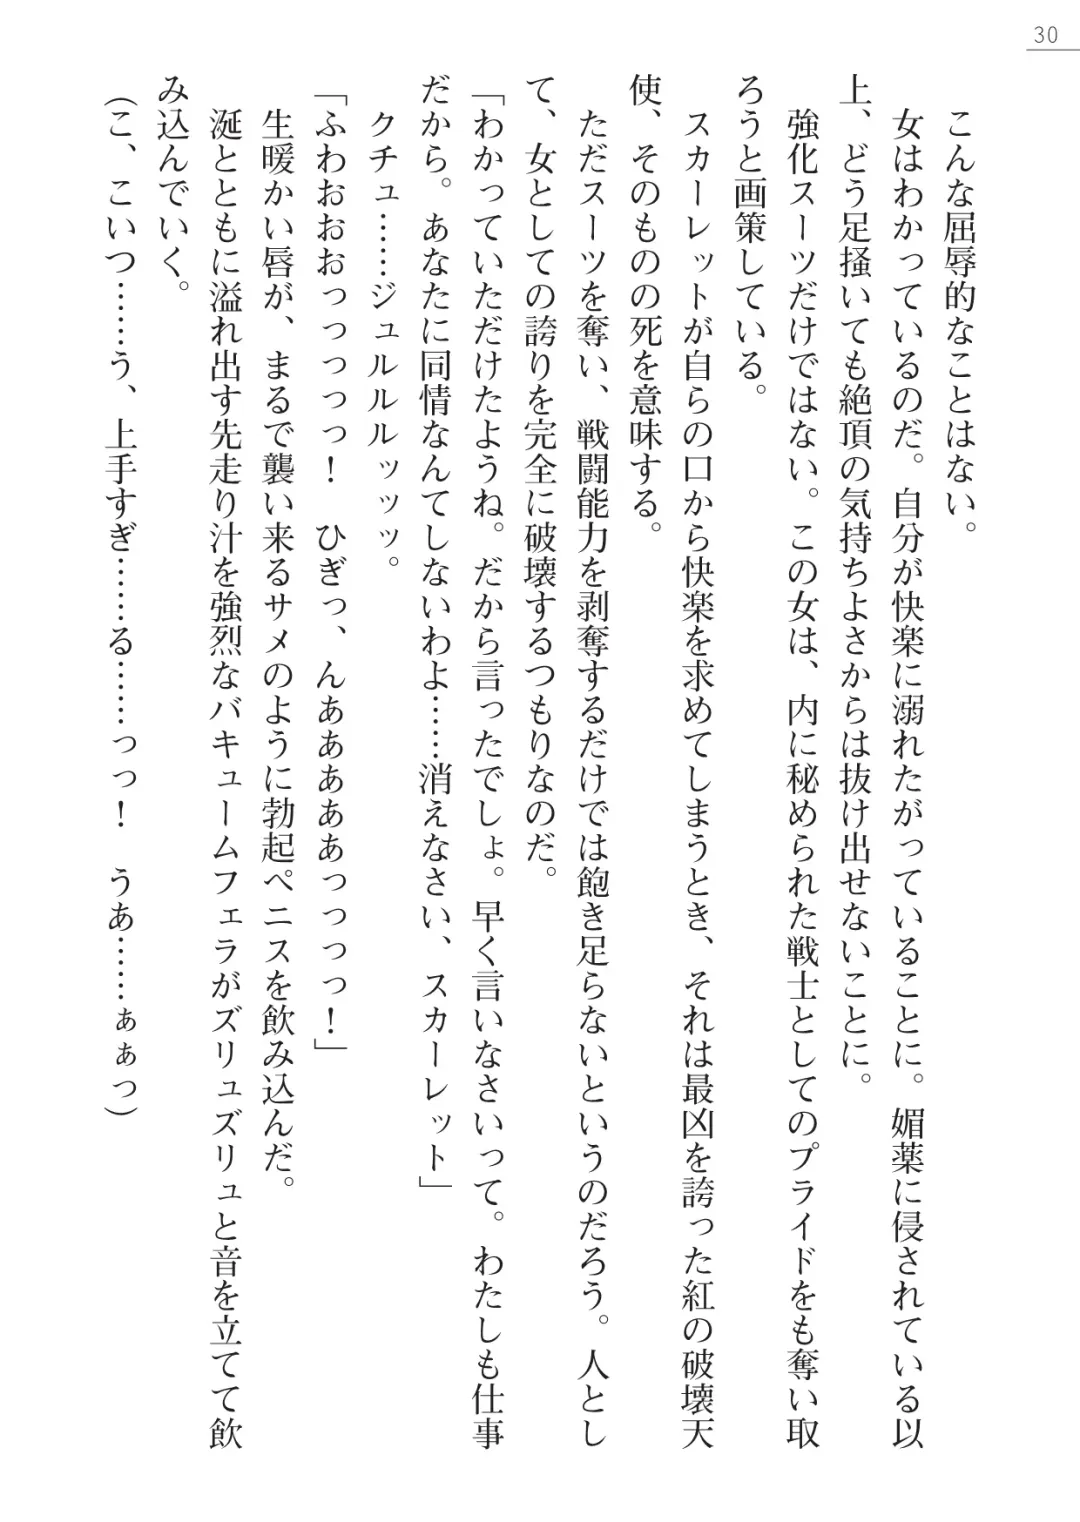 30
こんな屈辱的なことはない。
女はわかっているのだ。自分が快楽に溺れたがっていることに。媚薬に侵されている以
上、どう足掻いても絶頂の気持ちよさからは抜け出せないことに。
強化スーツだけではない。この女は、内に秘められた戦士としてのプライドをも奪い取
ろうと画策している。
スカーレットが自らの口から快楽を求めてしまうとき、それは最凶を誇った紅の破壊天
使、そのものの死を意味する。
ただスーツを奪い、戦闘能力を剥奪するだけでは飽き足らないというのだろう。人とし
て、女としての誇りを完全に破壊するつもりなのだ。
「わかっていただけたようね。だから言ったでしょ。早く言いなさいって。わたしも仕事
だから。あなたに同情なんてしないわよ……消えなさい、スカーレット」
クチュ……ジュルルルッッッ。
「ふわおおおっっっっっ！　ひぎっ、んあああああっっっっ！」
生暖かい唇が、まるで襲い来るサメのように勃起ペニスを飲み込んだ。
涎とともに溢れ出す先走り汁を強烈なバキュームフェラがズリュズリュと音を立てて飲
み込んでいく。
（こ、こいつ……う、上手すぎ……る……っっ！　うあ……ぁぁっ）